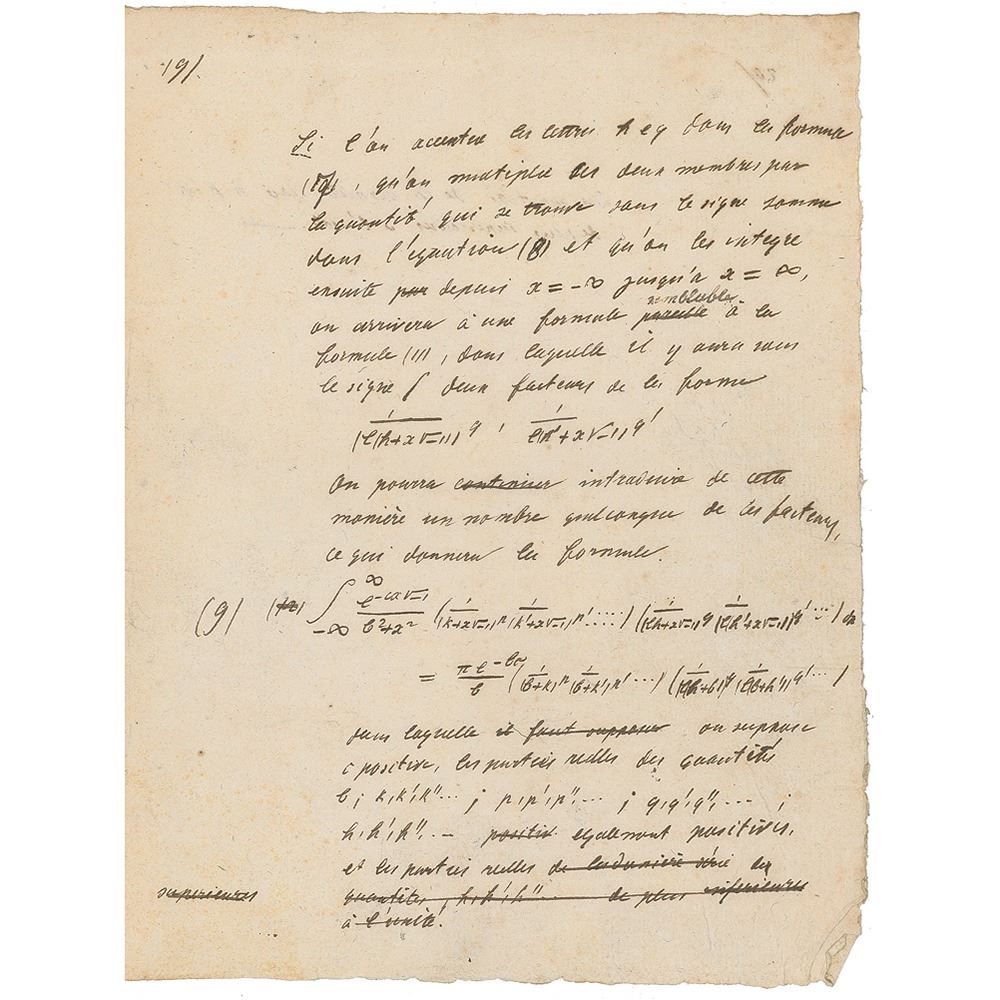 19/.
Si l'on accentue les lettres h et q dans la formule
(17), qu'on multiplie les deux membres par
la quantité, qui se trouve sous le signe somme
dans l'équation (8) et qu'on les integre
ensuite par depuis x = -∞ jusqu'à x = ∞,
semblable
on arrivera à une formule pareille à la
formule (11), dans laquelle il y aura sous
le signe ∫ deux facteurs de la forme
1/(l(h+x√-1))^q , 1/(l(h'+x√-1))^q'
On pourra continuer introduire de cette
manière un nombre quelconque de ces facteurs,
ce qui donnera la formule.
(9) ∫_{-∞}^{∞} e^{-cx√-1}/(b²+x²) (1/(k+x√-1)^p 1/(k'+x√-1)^p' ....) (1/(l(h+x√-1))^q 1/(l(h'+x√-1))^q' ...) dx
= π e^{-bc}/b (1/(b+k)^p 1/(b+k')^p' ...) (1/(l(h+b))^q 1/(l(b+h'))^q' ...)
dans laquelle il faut supposer on suppose
c positive, les parties réelles des quantités
b; k, k', k''... ; p, p', p'', ... ; q, q', q'', ... ;
h, h', h'', - positiv egalement positives,
et les parties reelles de la derniere série les
quantités, h, h', h'' ... de plus inferieures
superieures
à l'unité.